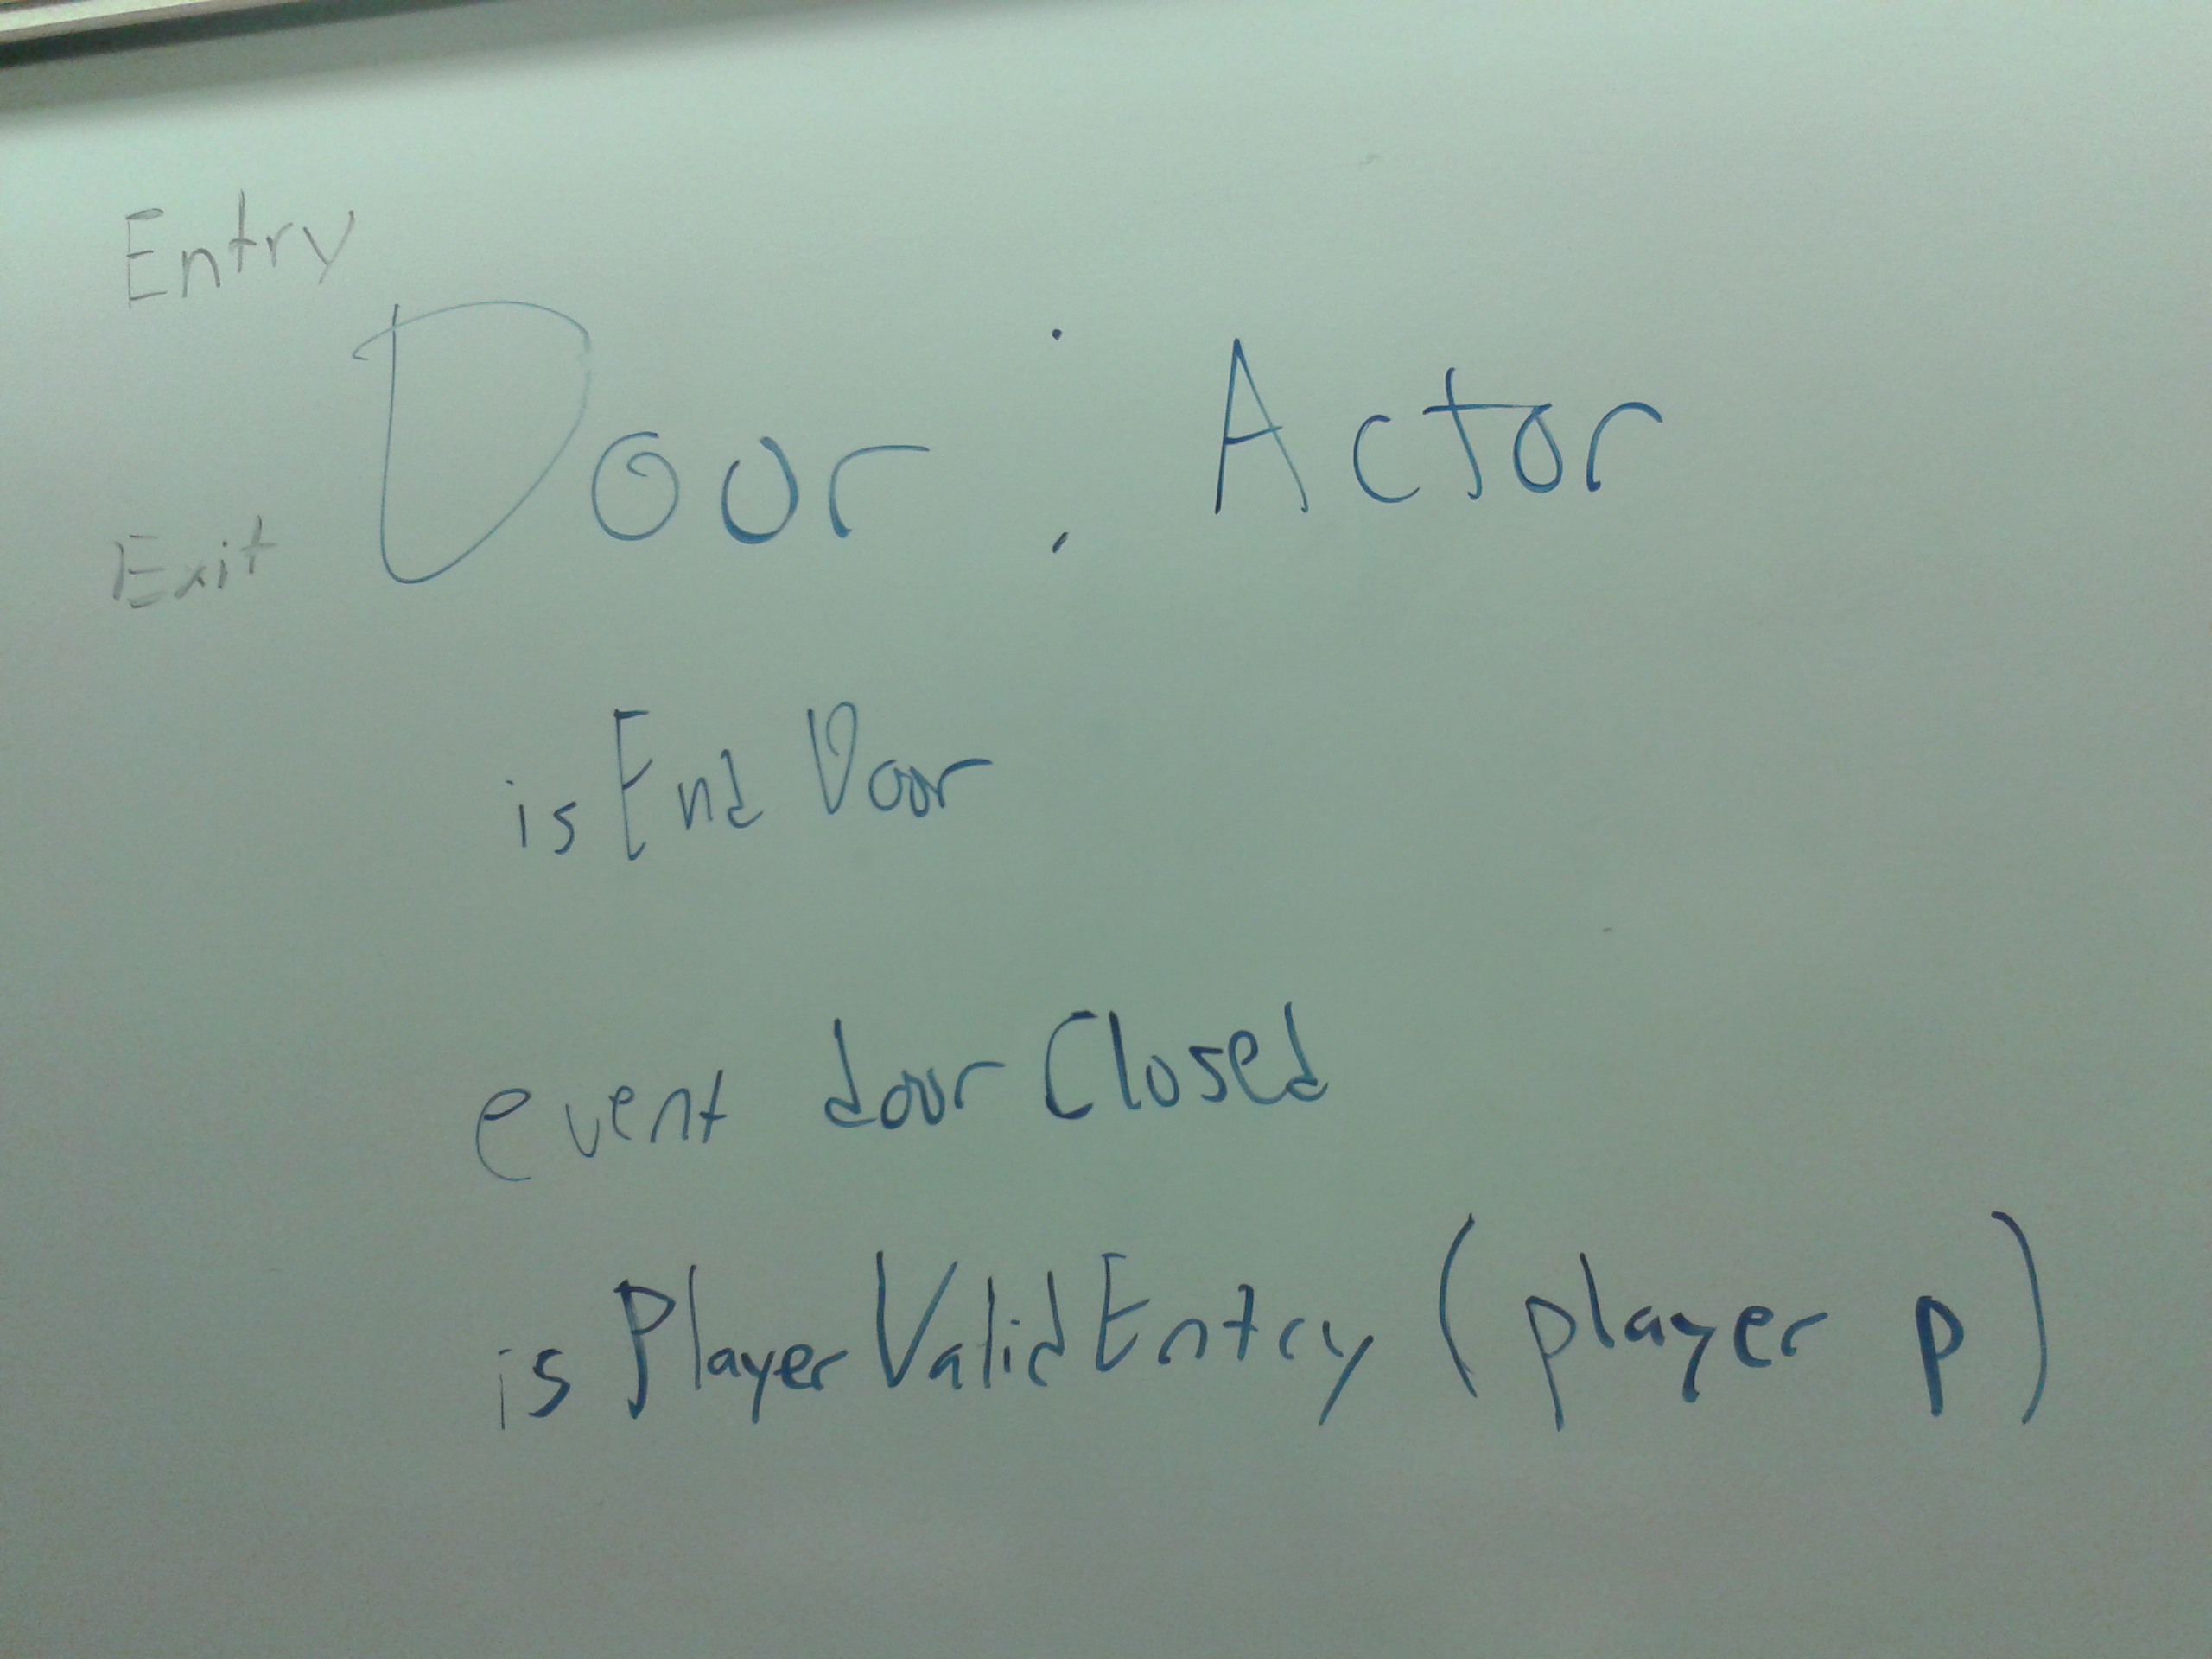 Entry
Door : Actor
Exit
isEndDoor
event doorClosed
isPlayerValidEntry (player p)